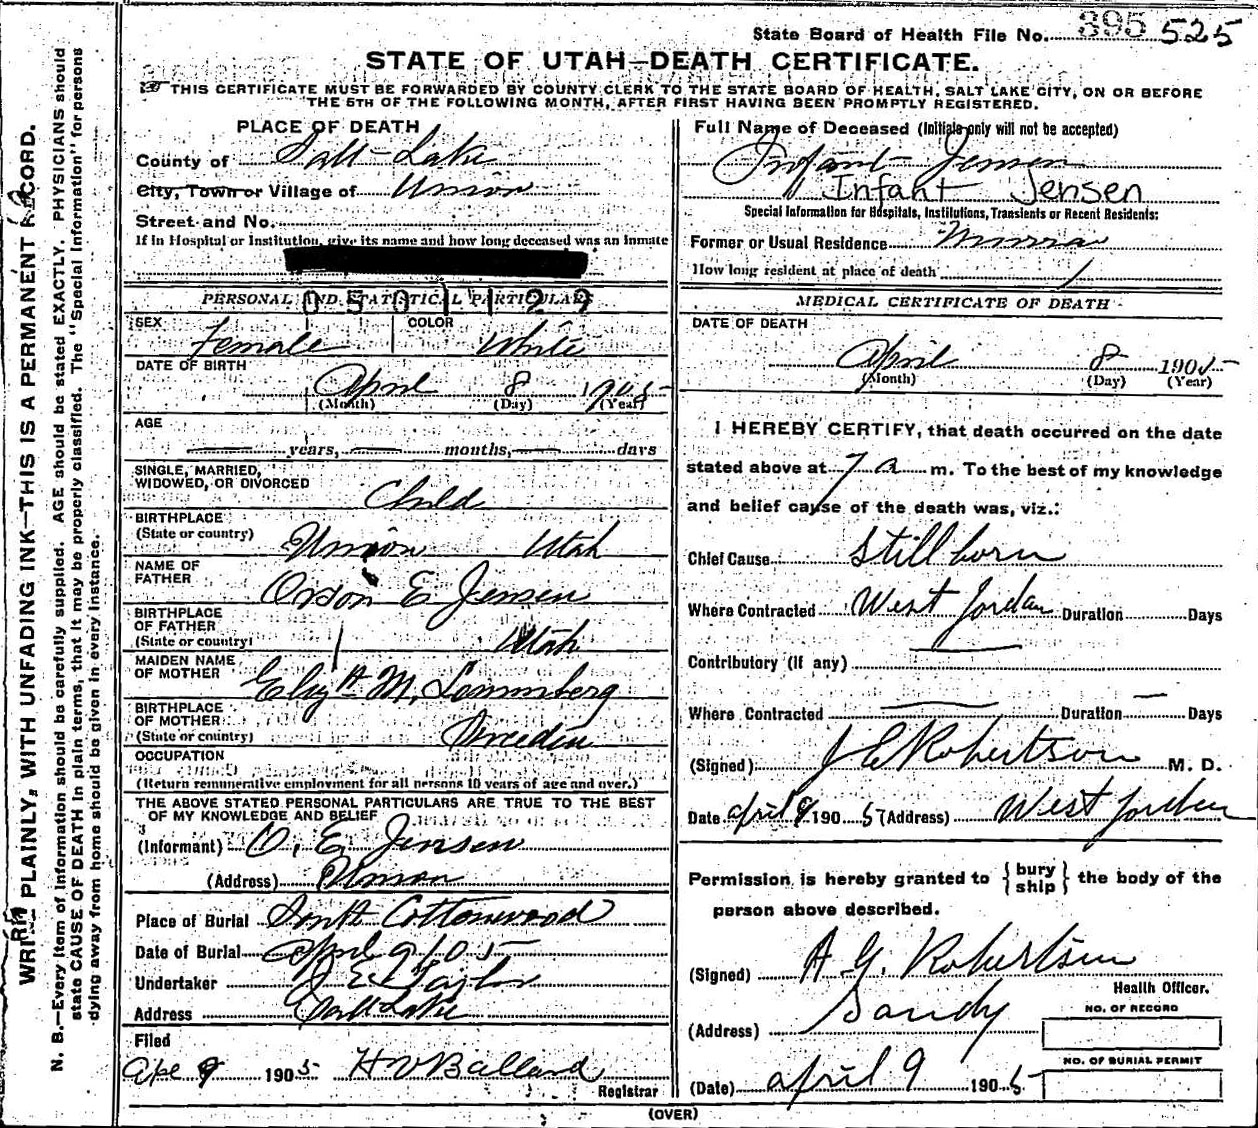 State Board of Health File No. 395 525
STATE OF UTAH—DEATH CERTIFICATE.
THIS CERTIFICATE MUST BE FORWARDED BY COUNTY CLERK TO THE STATE BOARD OF HEALTH, SALT LAKE CITY, ON OR BEFORE
THE 5TH OF THE FOLLOWING MONTH, AFTER FIRST HAVING BEEN PROMPTLY REGISTERED.
PLACE OF DEATH
County of Salt Lake
City, Town or Village of Union
Street and No.
If in Hospital or Institution, give its name and how long deceased was an inmate
PERSONAL AND STATISTICAL PARTICULARS
SEX Female COLOR White
DATE OF BIRTH
April 8 1905
(Month) (Day) (Year)
AGE
years, months, days
SINGLE, MARRIED,
WIDOWED, OR DIVORCED Child
BIRTHPLACE
(State or country) Union Utah
NAME OF
FATHER Orson E Jensen
BIRTHPLACE
OF FATHER
(State or country) Utah
MAIDEN NAME
OF MOTHER M.
BIRTHPLACE
OF MOTHER
(State or country) Sweeden
OCCUPATION
(Return remunerative employment for all persons 10 years of age and over.)
THE ABOVE STATED PERSONAL PARTICULARS ARE TRUE TO THE BEST
OF MY KNOWLEDGE AND BELIEF
(Informant) O. E. Jensen
(Address) Union
Place of Burial South Cottonwood
Date of Burial April 9 1905
Undertaker J E Taylor
Address Salt Lake
Filed
Apr 9 1905 H V Ballard
Registrar
Full Name of Deceased (Initials only will not be accepted)
Infant Jensen
Infant Jensen
Special Information for Hospitals, Institutions, Transients or Recent Residents:
Former or Usual Residence Murray
How long resident at place of death
MEDICAL CERTIFICATE OF DEATH
DATE OF DEATH
April 8 1905
(Month) (Day) (Year)
I HEREBY CERTIFY, that death occurred on the date
stated above at 7 a m. To the best of my knowledge
and belief cause of the death was, viz.:
Chief Cause Still born
Where Contracted West Jordan Duration Days
Contributory (if any)
Where Contracted Duration Days
(Signed) J E Robertson M. D.
Date April 9 1905 (Address) West Jordan
Permission is hereby granted to { bury ship } the body of the
person above described.
(Signed) A G. Robertson
Health Officer.
(Address) Sandy
NO. OF RECORD
NO. OF BURIAL PERMIT
(Date) April 9 1905
(OVER)
WRITE PLAINLY, WITH UNFADING INK—THIS IS A PERMANENT RECORD.
N. B.—Every item of information should be carefully supplied. AGE should be stated EXACTLY. PHYSICIANS should
state CAUSE OF DEATH in plain terms, that it may be properly classified. The "Special Information" for persons
dying away from home should be given in every instance.